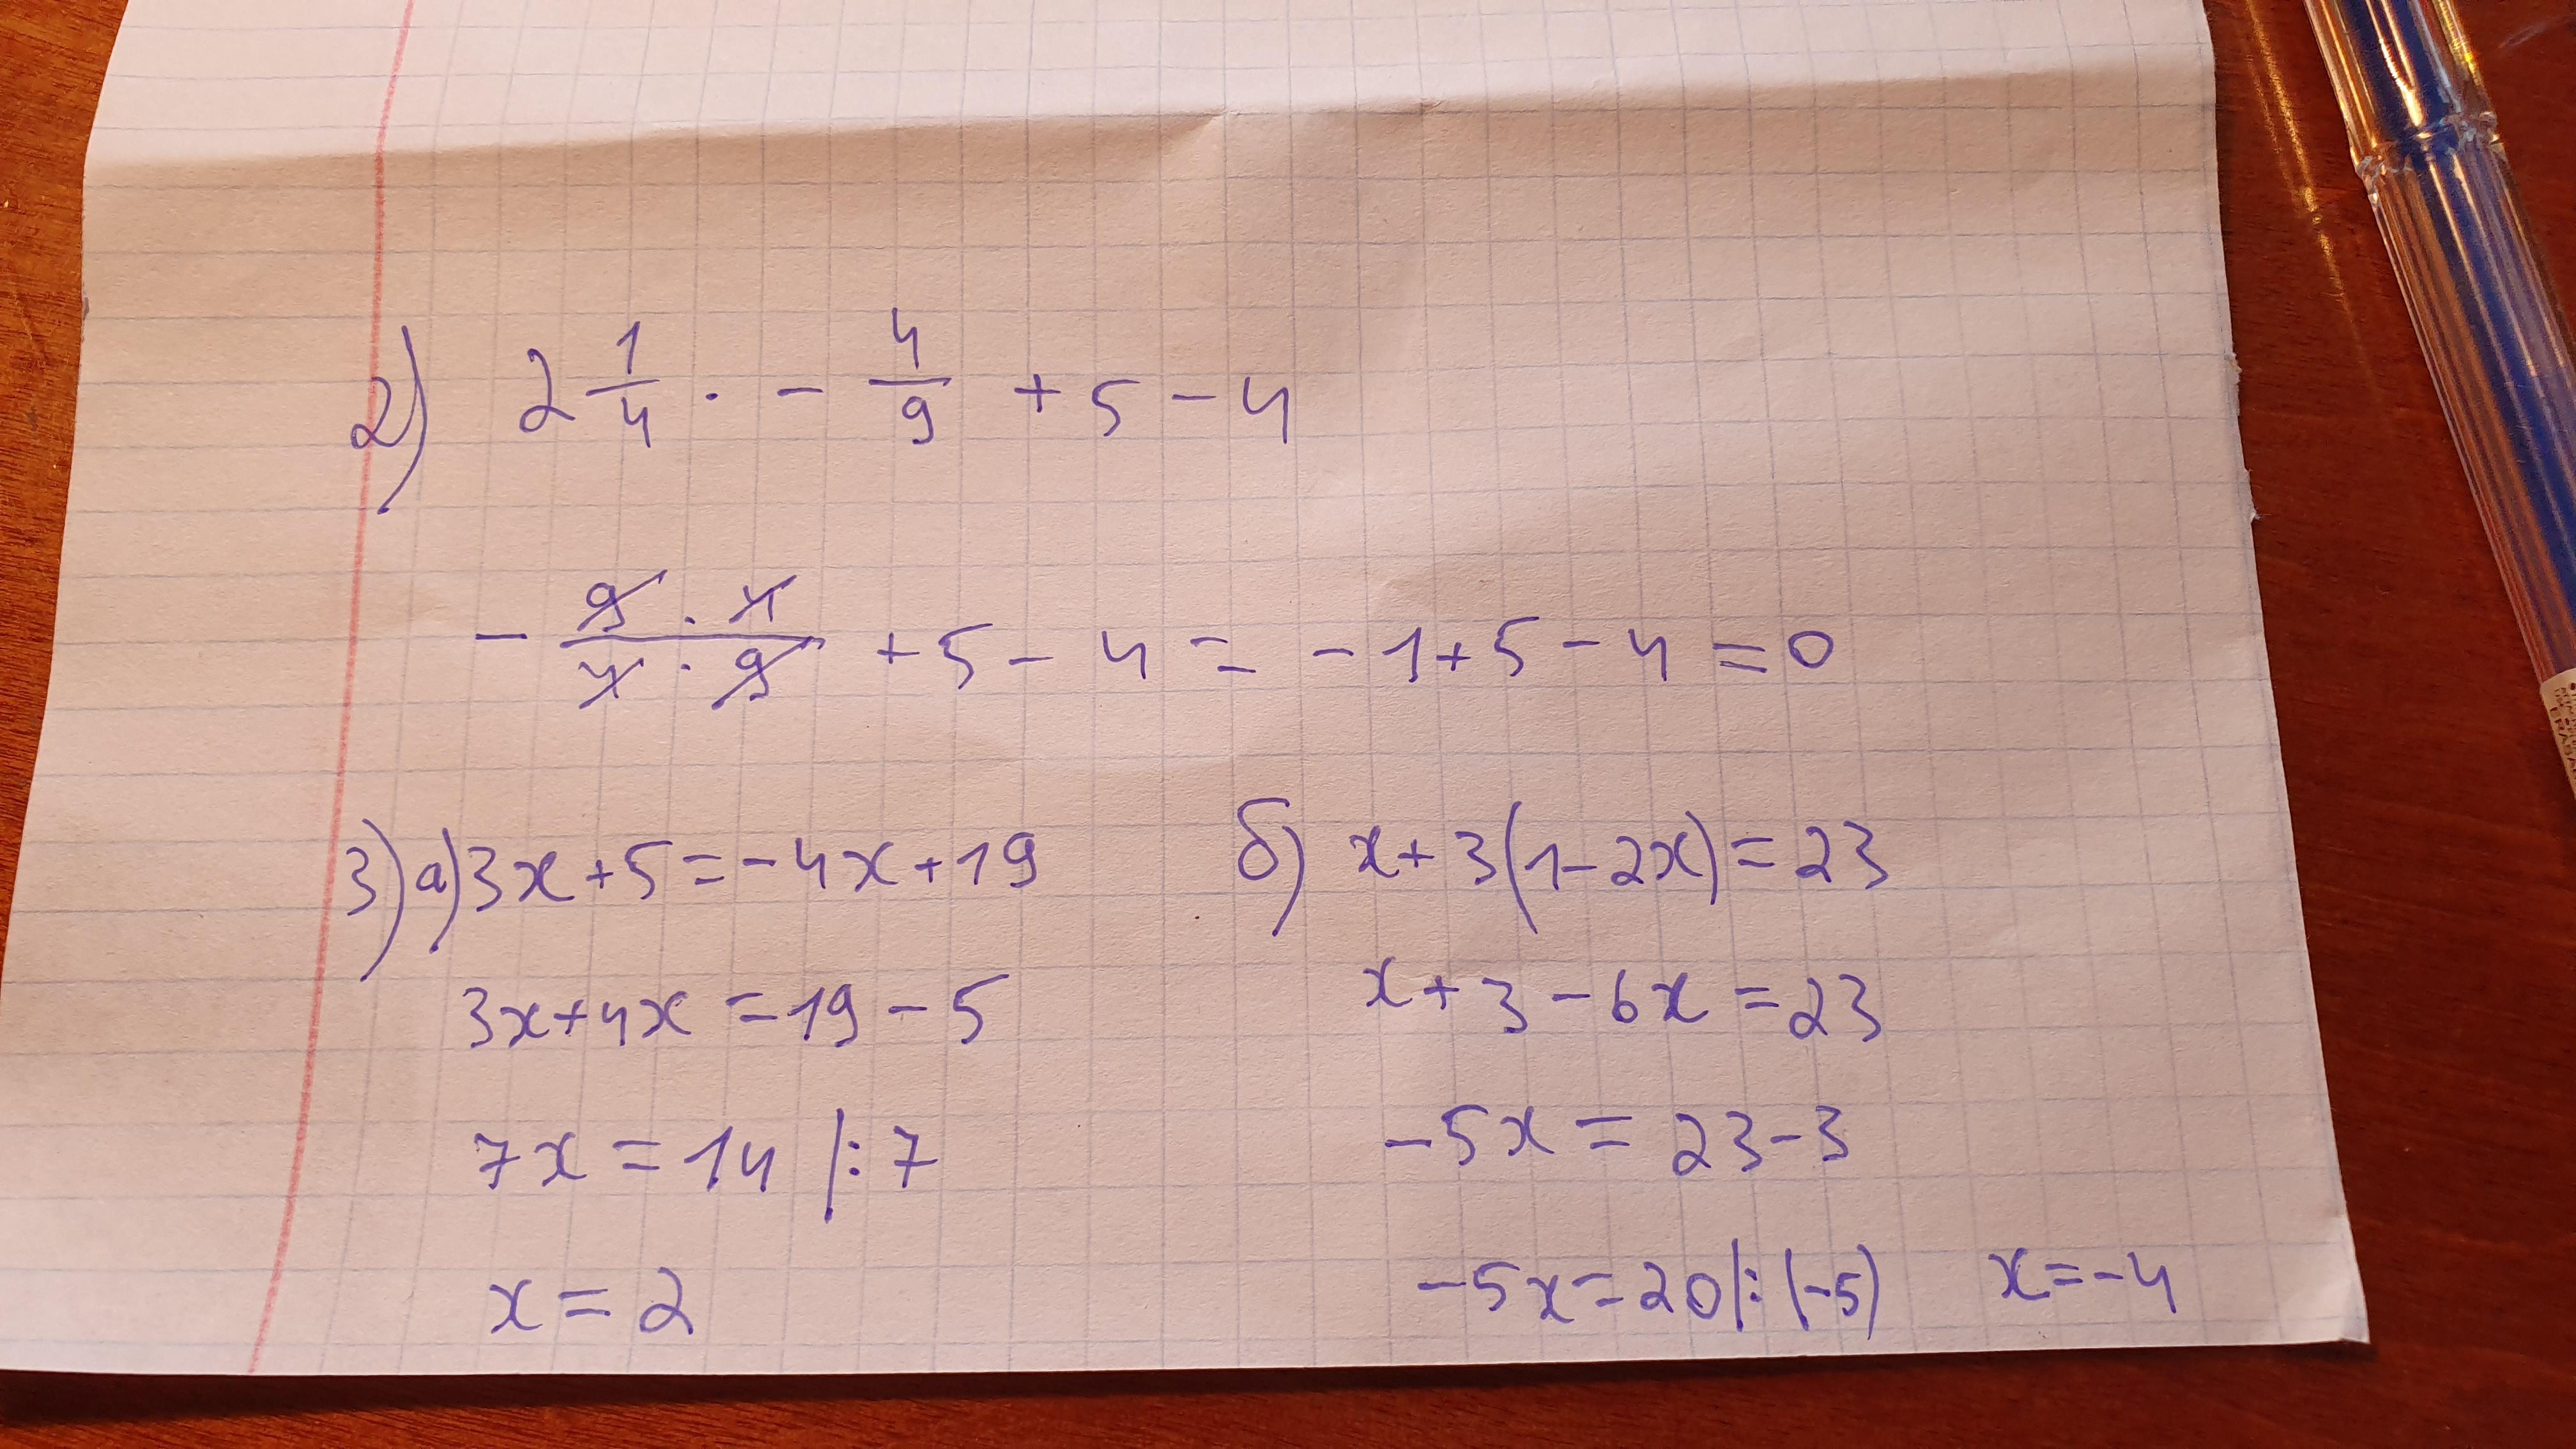 2) 2 1/4 · - 4/9 + 5 - 4
- (9 · 4)/(4 · 9) + 5 - 4 = - 1 + 5 - 4 = 0
3) а) 3x + 5 = -4x + 19
3x + 4x = 19 - 5
7x = 14 |: 7
x = 2
б) x + 3(1 - 2x) = 23
x + 3 - 6x = 23
-5x = 23 - 3
-5x = 20 |: (-5) x = -4